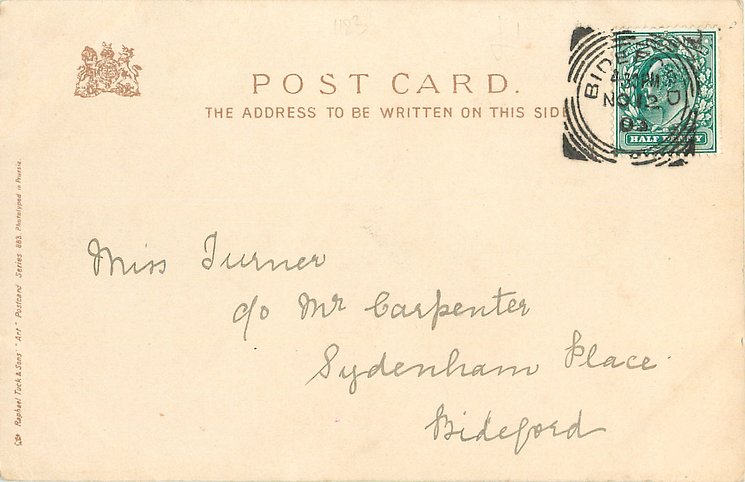 POST CARD.
THE ADDRESS TO BE WRITTEN ON THIS SIDE
BIDEFORD
NO 12
03
HALF PENNY
Miss Turner
c/o Mr Carpenter
Sydenham Place
Bideford
Raphael Tuck & Sons' "Art" Postcard Series 883. Phototyped in Prussia.